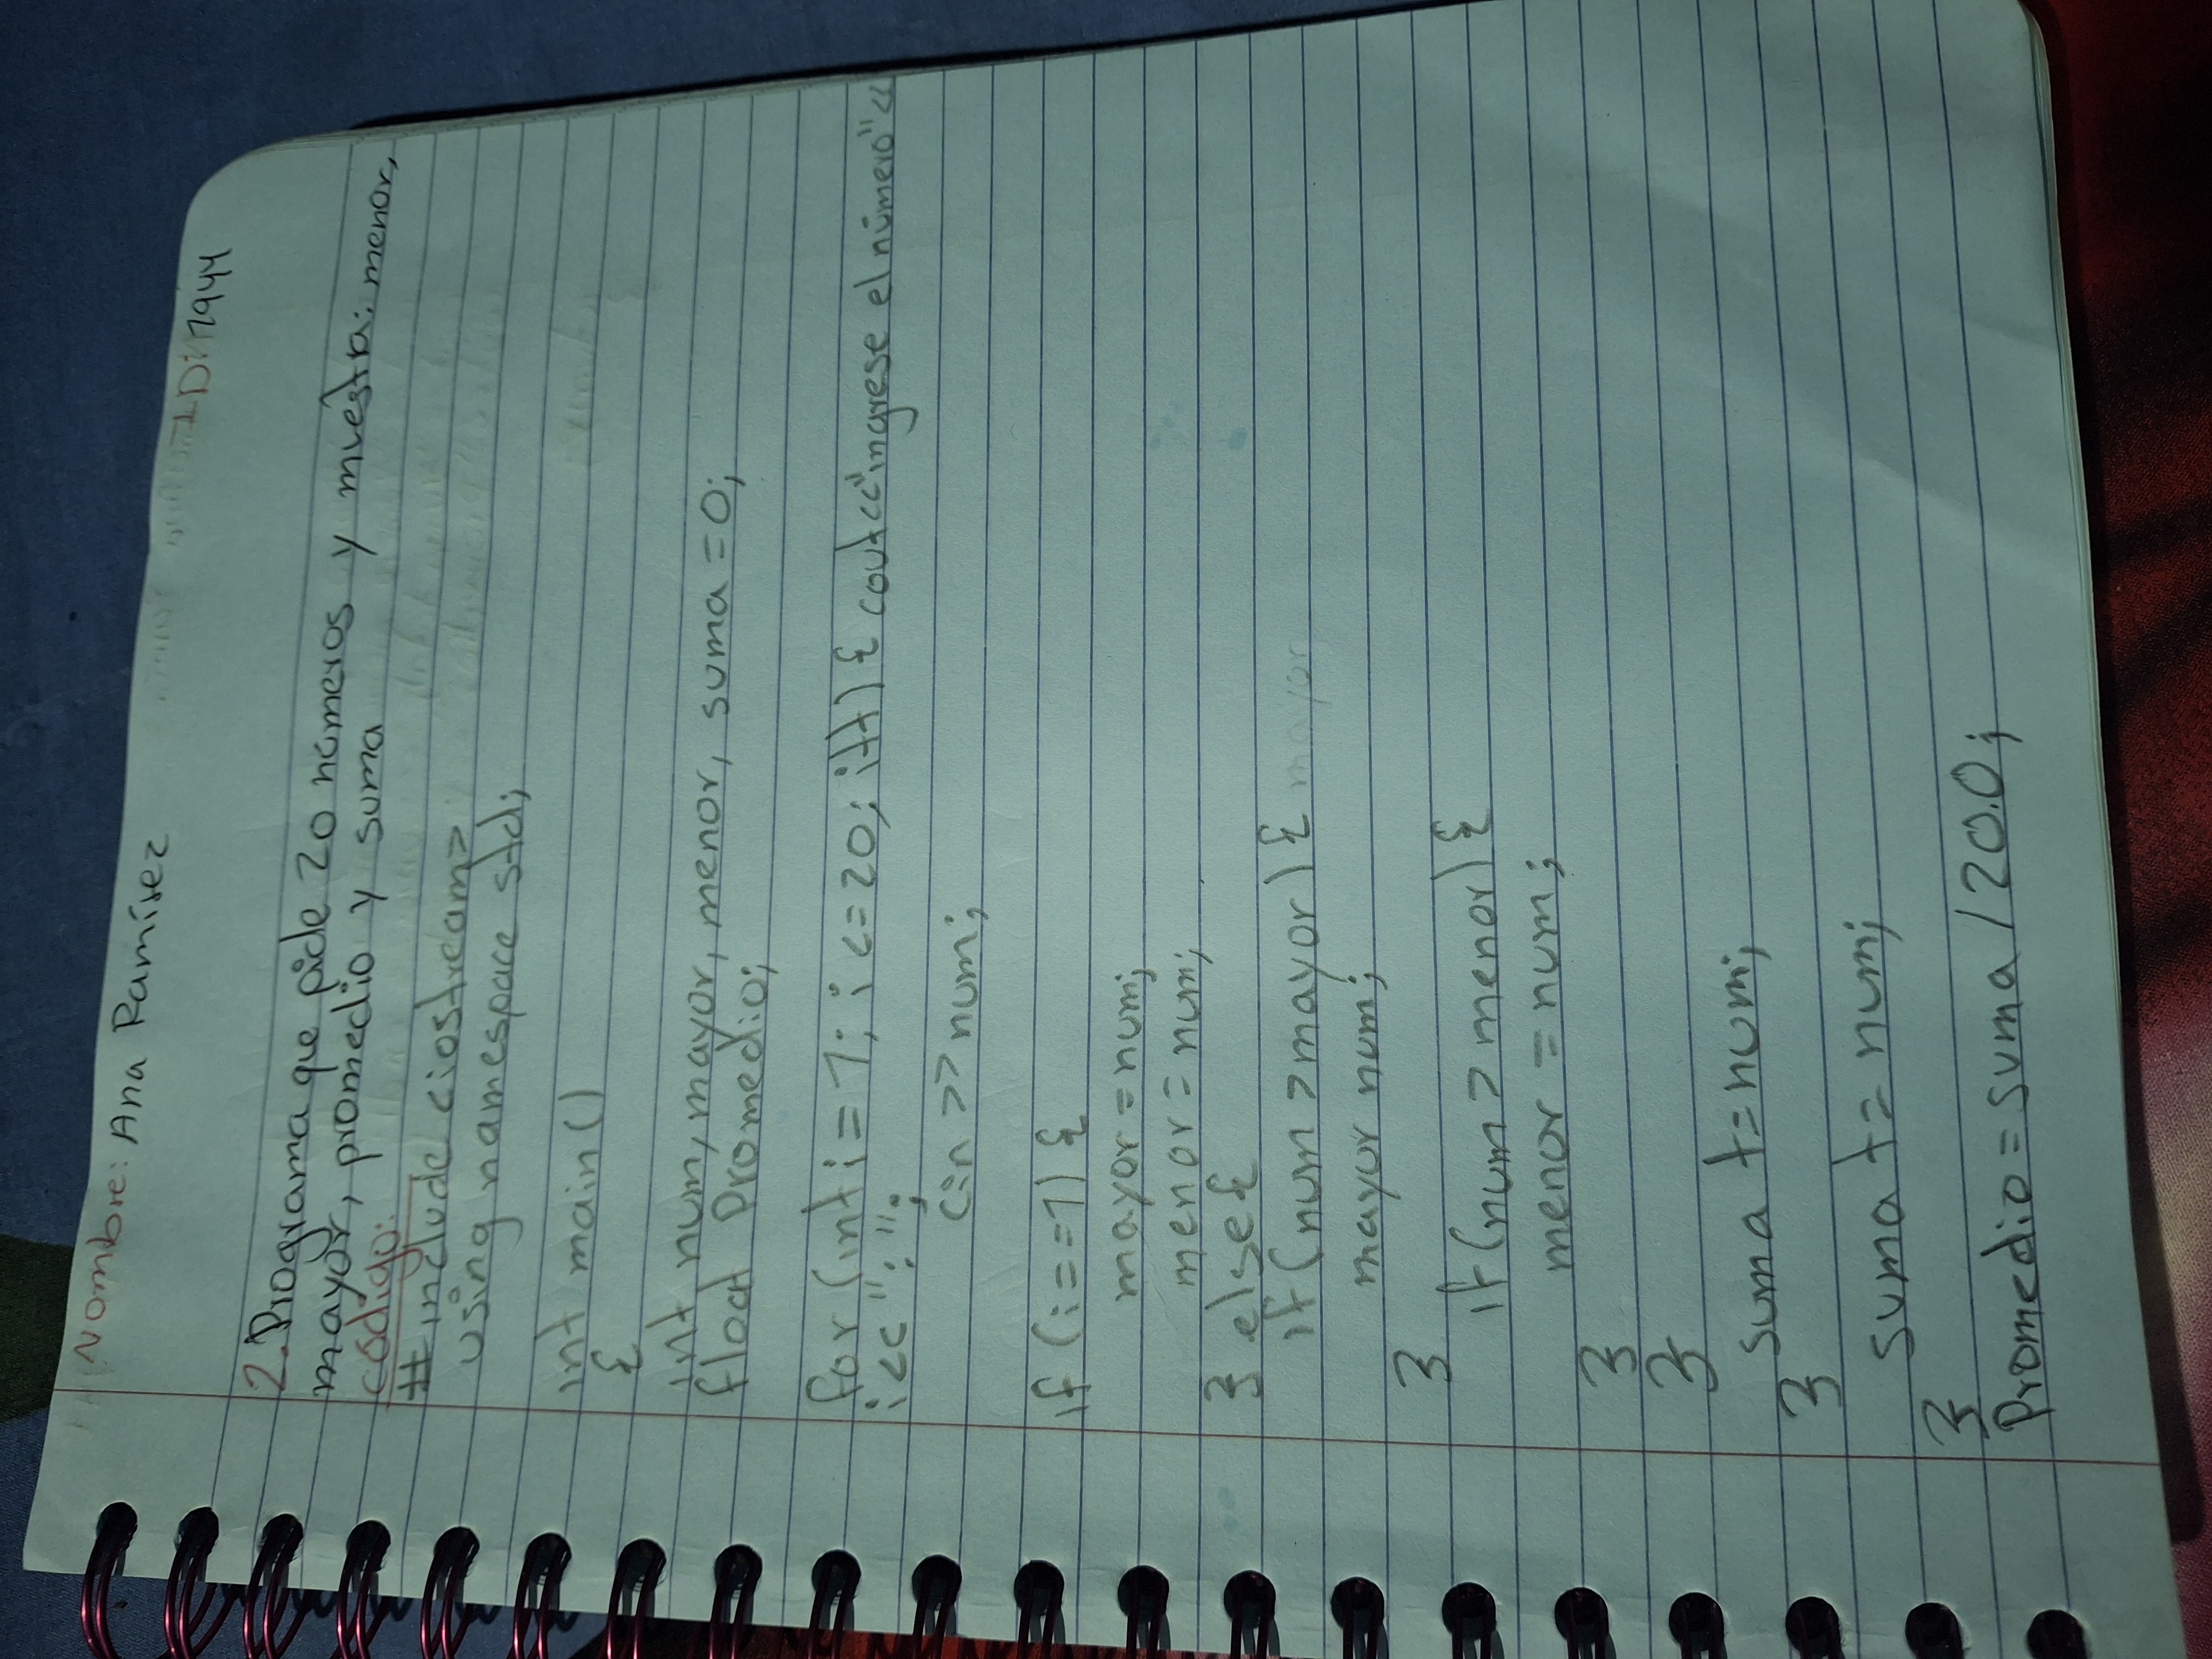 Nombre: Ana Ramírez ID:17944
2. Programa que pide 20 números y muestra: menor,
mayor, promedio y suma
código:
#include <iostream>
using namespace std;
int main()
{
int num, mayor, menor, suma = 0;
float Promedio;
for (int i = 1; i <= 20; i++) { cout << "ingrese el número" <<
i << ": ";
cin >> num;
if (i == 1) {
mayor = num;
menor = num;
} else {
if (num > mayor) { mayor
mayor num;
}
if (num > menor) {
menor = num;
}
}
suma += num;
}
suma += num;
}
Promedio = suma / 20.0;